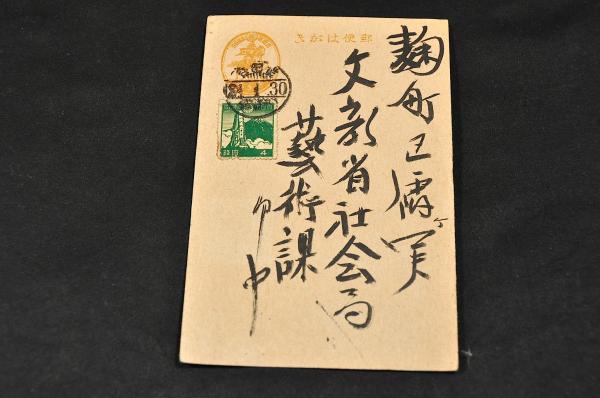 郵便はがき
麹町区霞ヶ関
文部省社会局
藝術課
御中
30
4